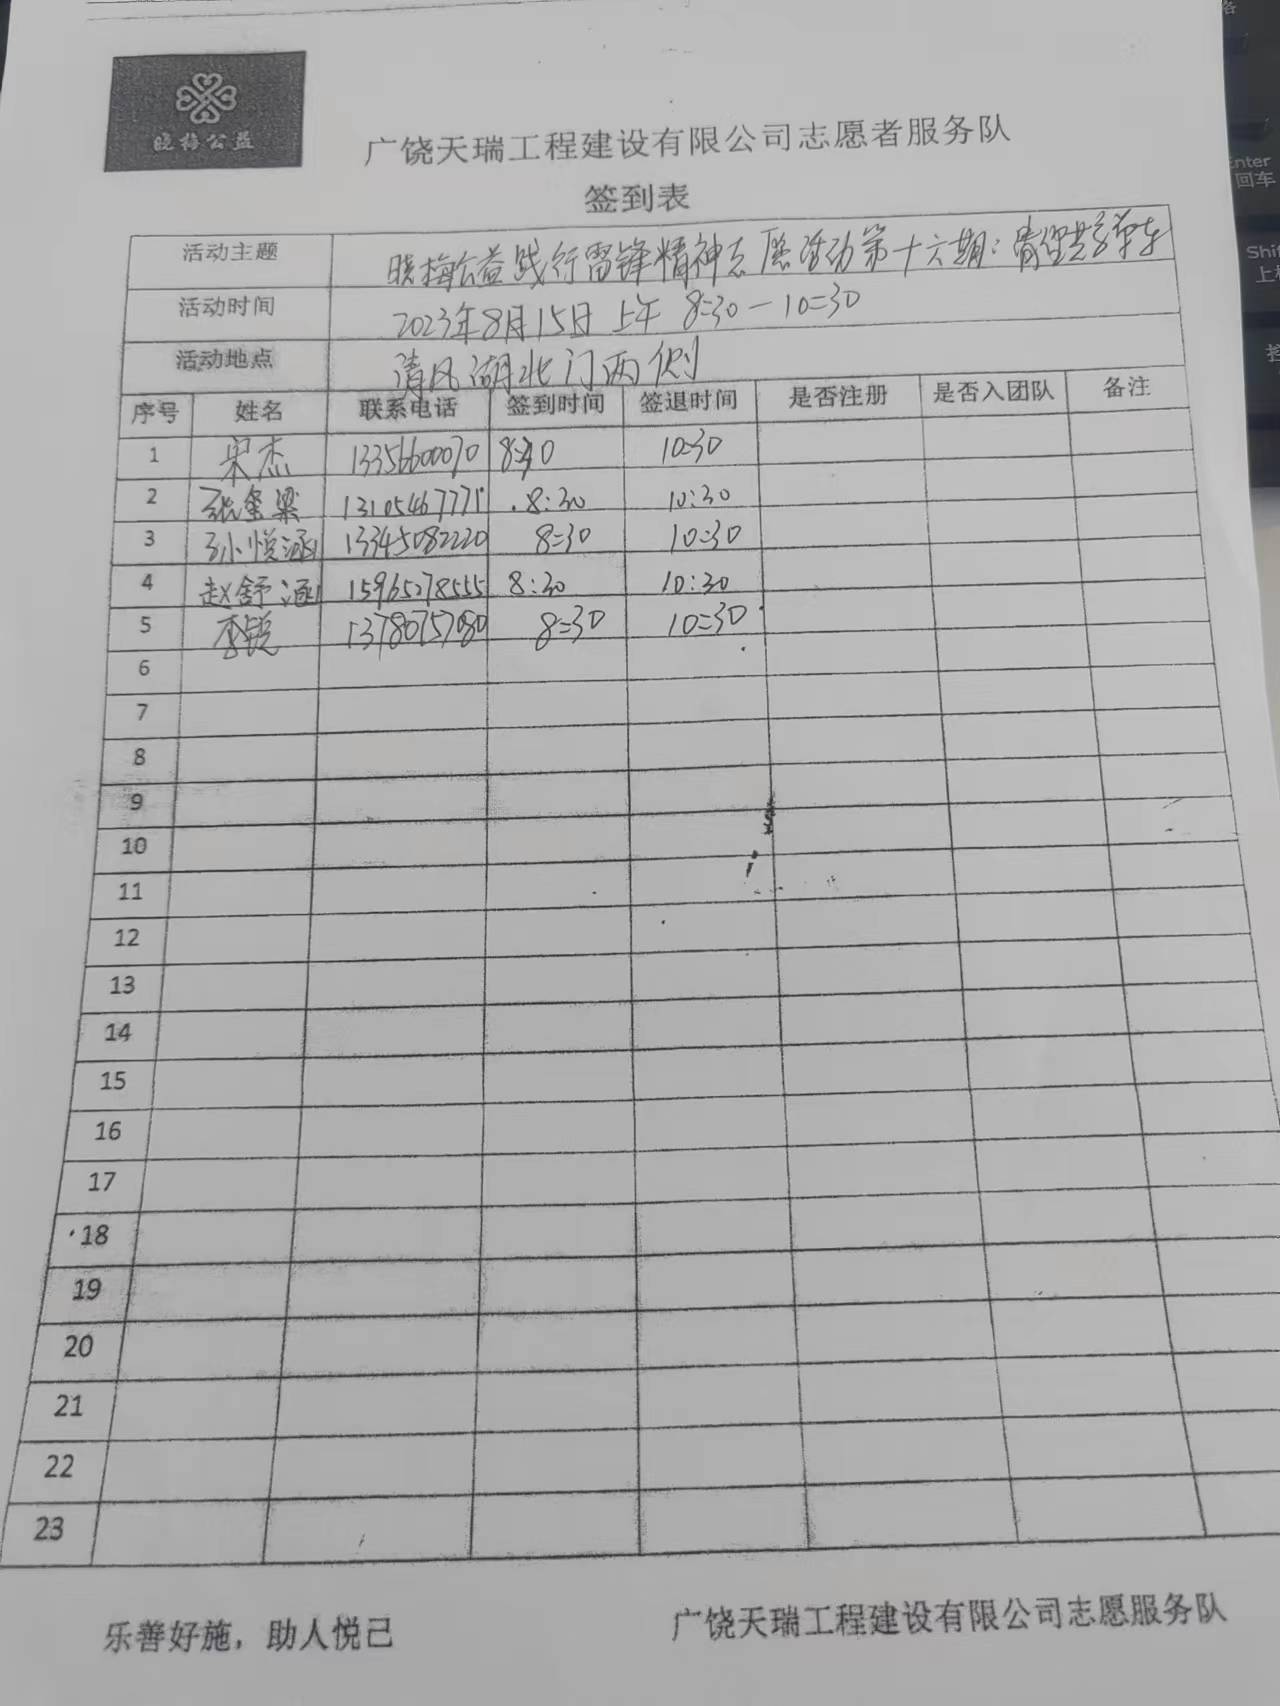 晓梅公益
广饶天瑞工程建设有限公司志愿者服务队
签到表
活动主题 晓梅公益践行雷锋精神志愿活动第十六期：清理共享单车
活动时间 2023年8月15日上午 8:30－10:30
活动地点 清风湖北门两侧
序号 姓名 联系电话 签到时间 签退时间 是否注册 是否入团队 备注
1 宋杰 13356600070 8:30 10:30
2 张奎梁 13105467771 8:30 10:30
3 孙悦涵 13345082220 8:30 10:30
4 赵舒涵 15965278555 8:30 10:30
5 李锐 13780757080 8:30 10:30
6
7
8
9
10
11
12
13
14
15
16
17
18
19
20
21
22
23
乐善好施，助人悦己 广饶天瑞工程建设有限公司志愿服务队
Enter
回车
Shift